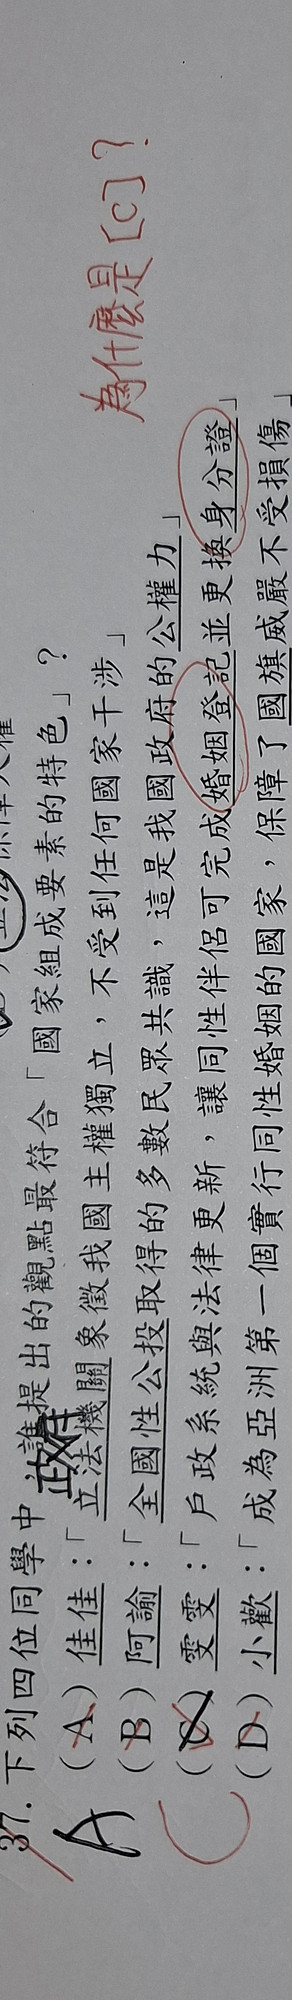 37. 下列四位同學中，誰提出的觀點最符合「國家組成要素的特色」？
政府
(A) 佳佳：「立法機關象徵我國主權獨立，不受到任何國家干涉」
(B) 阿諭：「全國性公投取得的多數民眾共識，這是我國政府的公權力」
(C) 雯雯：「戶政系統與法律更新，讓同性伴侶可完成婚姻登記並更換身分證」
(D) 小歡：「成為亞洲第一個實行同性婚姻的國家，保障了國旗威嚴不受損傷」
A
C
為什麼是[C]？